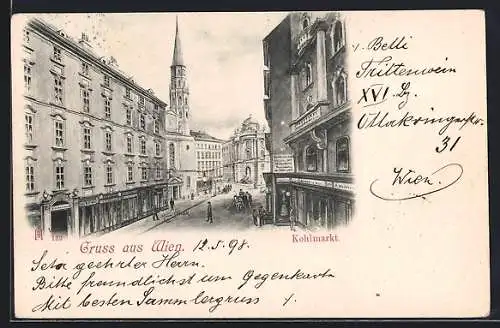 Y. Belli
Frittenwein
XVI. Bz.
Ottakringerstr.
31
Wien
M 122
Gruss aus Wien. 12.5.98.
Kohlmarkt.
Sehr geehrter Herrn.
Bitte freundlichst um Gegenkarte
Mit besten Sammlergruss
Y.